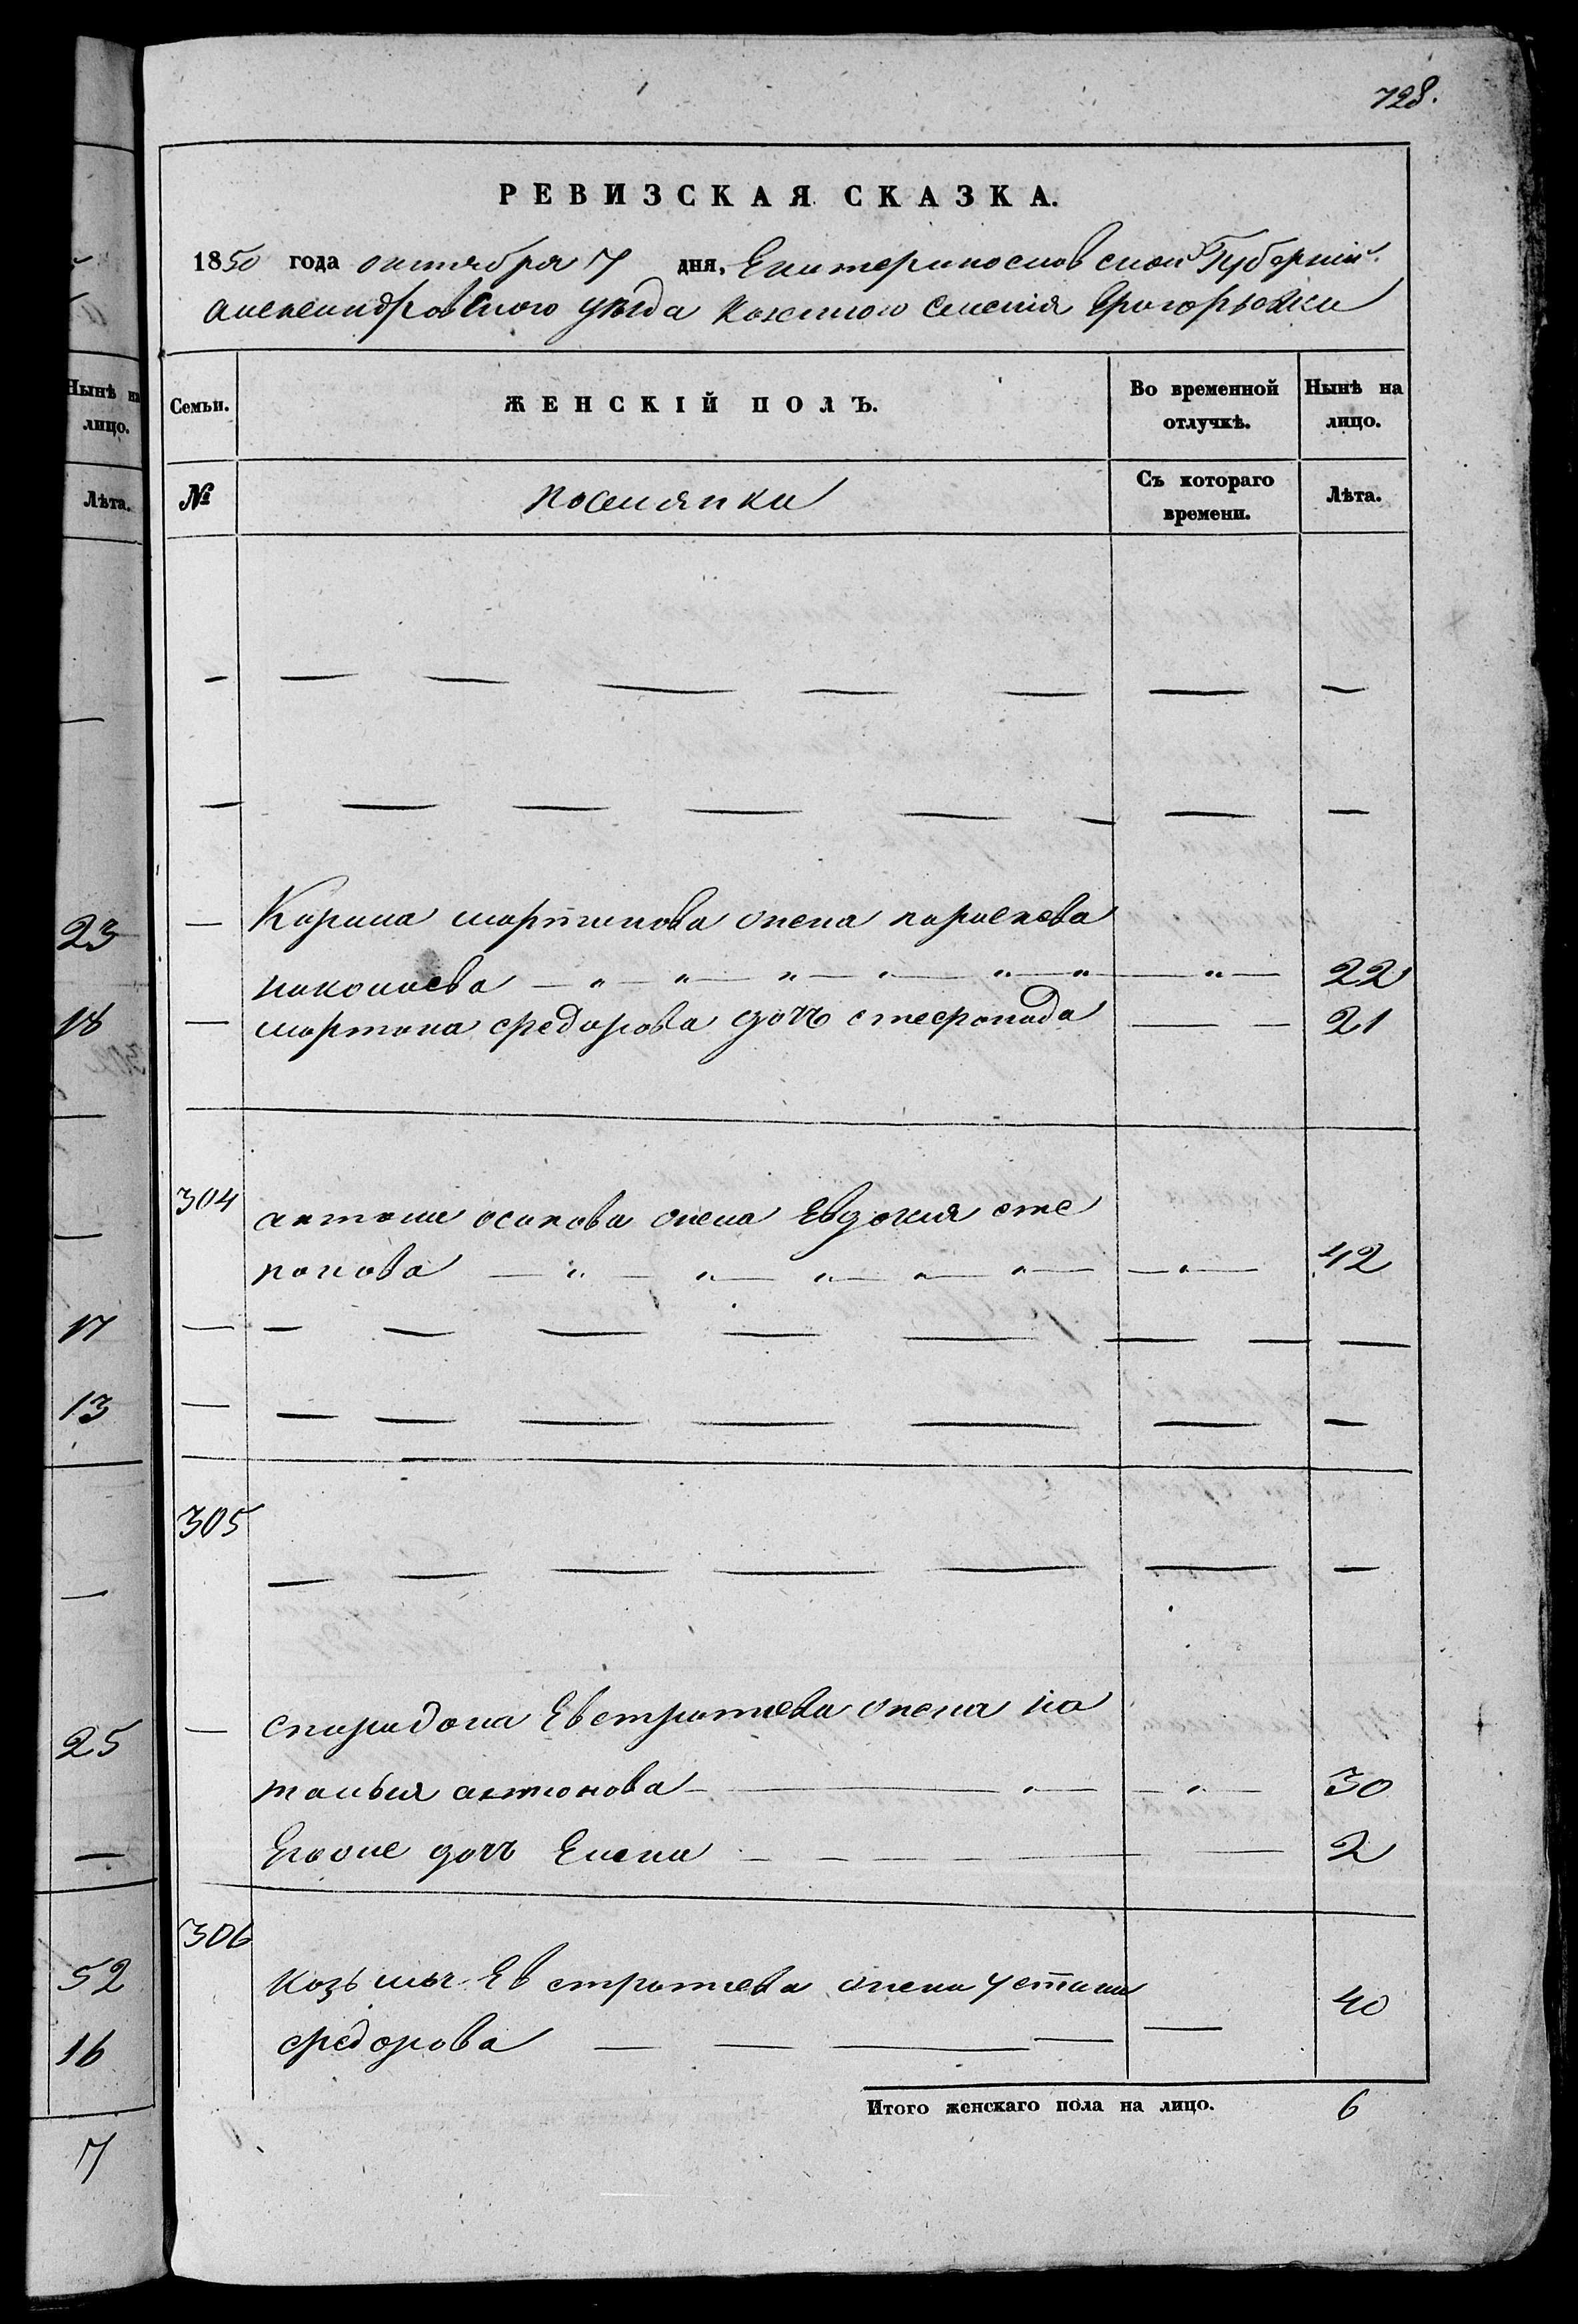 728.
РЕВИЗСКАЯ СКАЗКА.
1850 года октября 7 дня, Екатеринославской Губерніи
Александровского уезда казенного селенія Григорьевки
Нынѣ на
лицо.
Лѣта.
Семьи.
ЖЕНСКІЙ ПОЛЪ.
Во временной
отлучкѣ.
Нынѣ на
лицо.
№
поселянки
Съ котораго
времени.
Лѣта.
23
— мартинова жена параскева
николаева — 22
18
— мартина федорова дочь стефанида — 21
304 антона осипова жена Евдокия сте
панова — 42
17
13
305
25
— спиридона Евстратиева жена на
талья антонова — 30
Егоже дочь Елена — 2
306
52
козьмы Евстратиева жена устиния
федорова — 40
16
Итого женскаго пола на лицо. 6
7